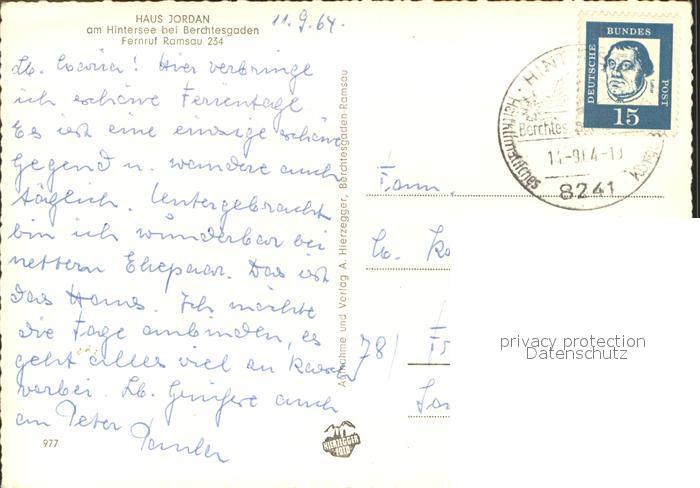 HAUS JORDAN
am Hintersee bei Berchtesgaden
Fernruf Ramsau 234
11.9.64.
Lb. ! Hier verbringe
ich schöne Ferientage
Es ist eine einzige schöne
Gegend u. wandere auch
täglich. Untergebracht
bin ich wunderbar bei
nettem Ehepaar. Das ist
das Haus. Ich möchte
die Tage anbinden, es
geht alles viel zu rasch
vorbei. Lb. Grüße auch
an Peter
977
Aufnahme und Verlag A. Hierzegger, Berchtesgaden-Ramsau
HIERZEGGER
FOTO
DEUTSCHE
BUNDES
POST
15
HINT
Berchtes
Heilklimatisches
8241
Fam.
78/
privacy protection
Datenschutz